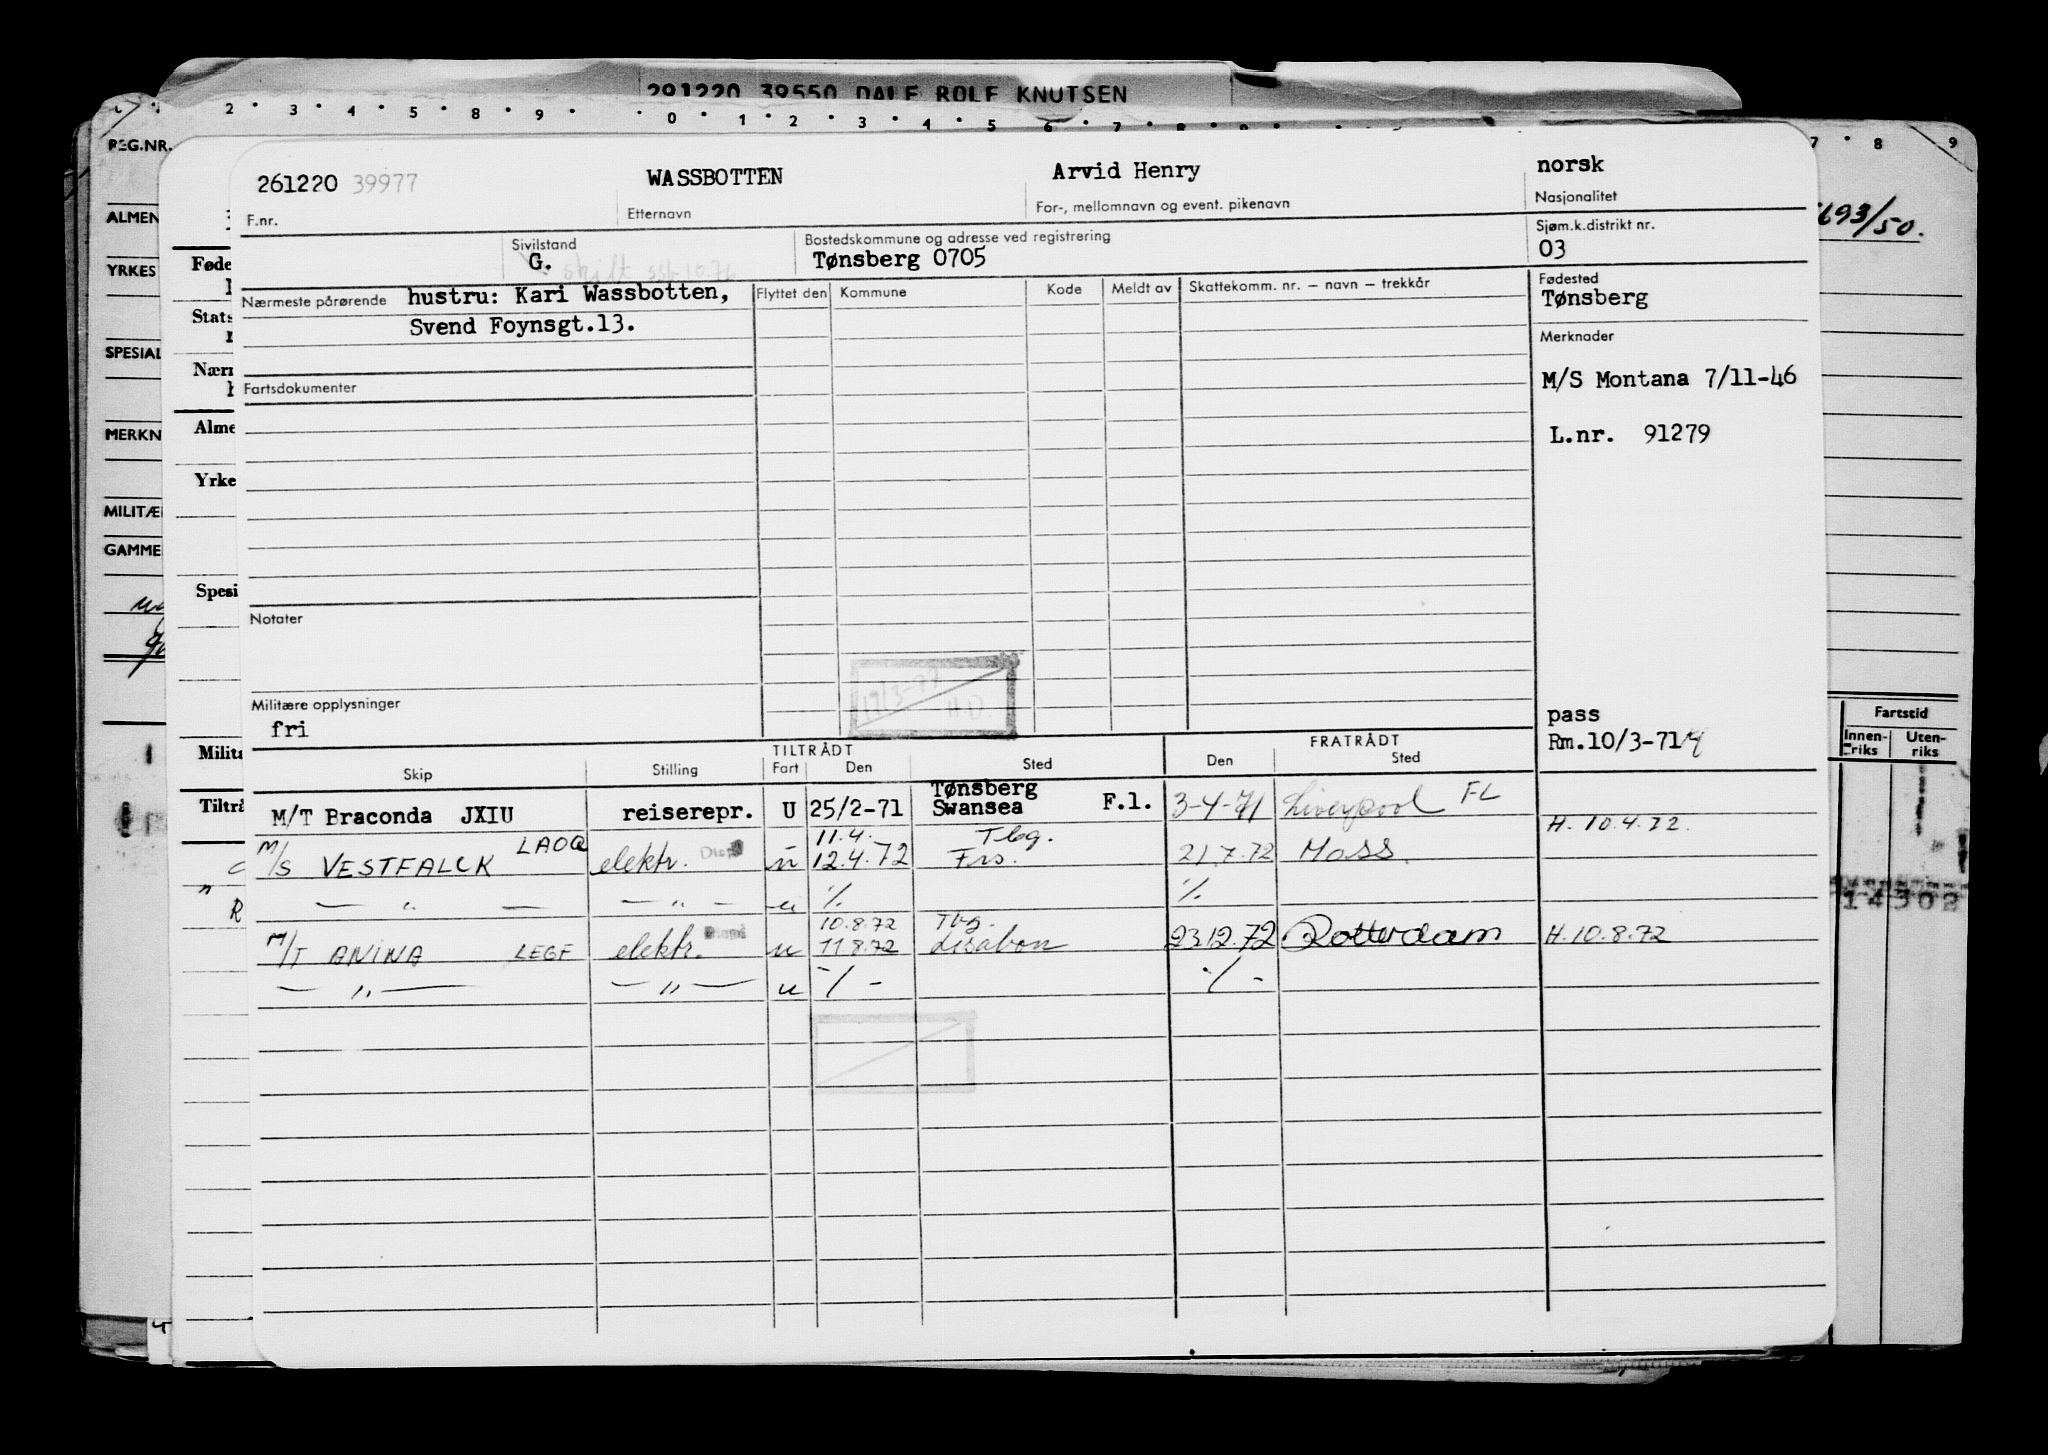 291220 39550 DALE ROLF KNUTSEN
2 3 4 5 8 9 0 1 2 3 4 5 6 7 8 9
7 8 9
REG.NR.
261220 39977 WASSBOTTEN Arvid Henry norsk
F.nr. Etternavn For-, mellomnavn og event. pikenavn Nasjonalitet
ALMEN
693/50.
Sivilstand Bostedskommune og adresse ved registrering Sjøm.k.distrikt nr.
G. Tønsberg 0705 03
YRKES
Føde
skift
Nærmeste pårørende hustru: Kari Wassbotten, Flyttet den Kommune Kode Meldt av Skattekomm. nr. — navn — trekkår Fødested
Tønsberg
Svend Foynsgt.13.
Stats
Merknader
SPESIAL
Nærm
Fartsdokumenter
M/S Montana 7/11-46
MERKN
Alme
L.nr. 91279
Yrke
MILITÆ
GAMME
Spesi
Notater
17/3-77
H.D.
Militære opplysninger
fri
pass
Rm.10/3-71
Fartstid
Innenriks Utenriks
Milita
TILTRÅDT FRATRÅDT
Skip Stilling Fart Den Sted Den Sted
Tiltrå
M/T Braconda JXIU reiserepr. U 25/2-71 Tønsberg
Swansea F.l. 3-4-71 Liverpool FL
H. 10.4.72.
M/S VESTFALCK LAOQ elektr. u 11.4. Tbg.
12.4.72 Frs. 21.7.72 Moss.
— „ — — „ — u ·/. ·/.
14302
M/T ANINA LEGF elektr. u 10.8.72 Tbg.
11.8.72 Lisabon 23.12.72 Rotterdam H.10.8.72
— „ — — „ — u -/- ·/-